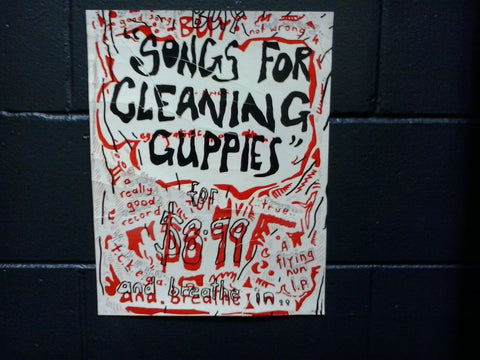 BUY!
good song
not wrong
"SONGS FOR
CLEANING
GUPPIES"
a
really
good
record
for
$8.99
true
A
flying
nun
L.P.
and breathe in